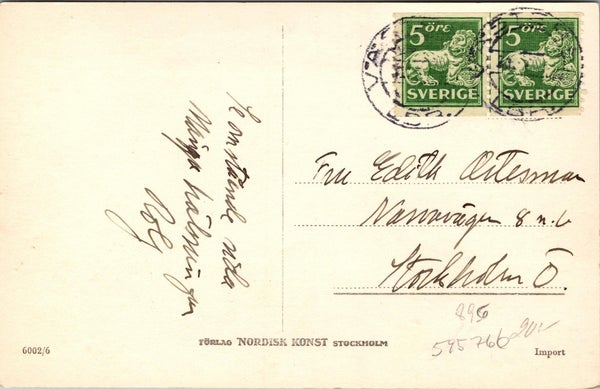 5 ÖRE
SVERIGE
5 ÖRE
SVERIGE
Se omstående sida
Många hälsningar
Fru Edith Ortesman
Narvavägen 8 n.b
Stockholm Ö.
896
545766
20:-
6002/6
FÖRLAG NORDISK KONST STOCKHOLM
Import